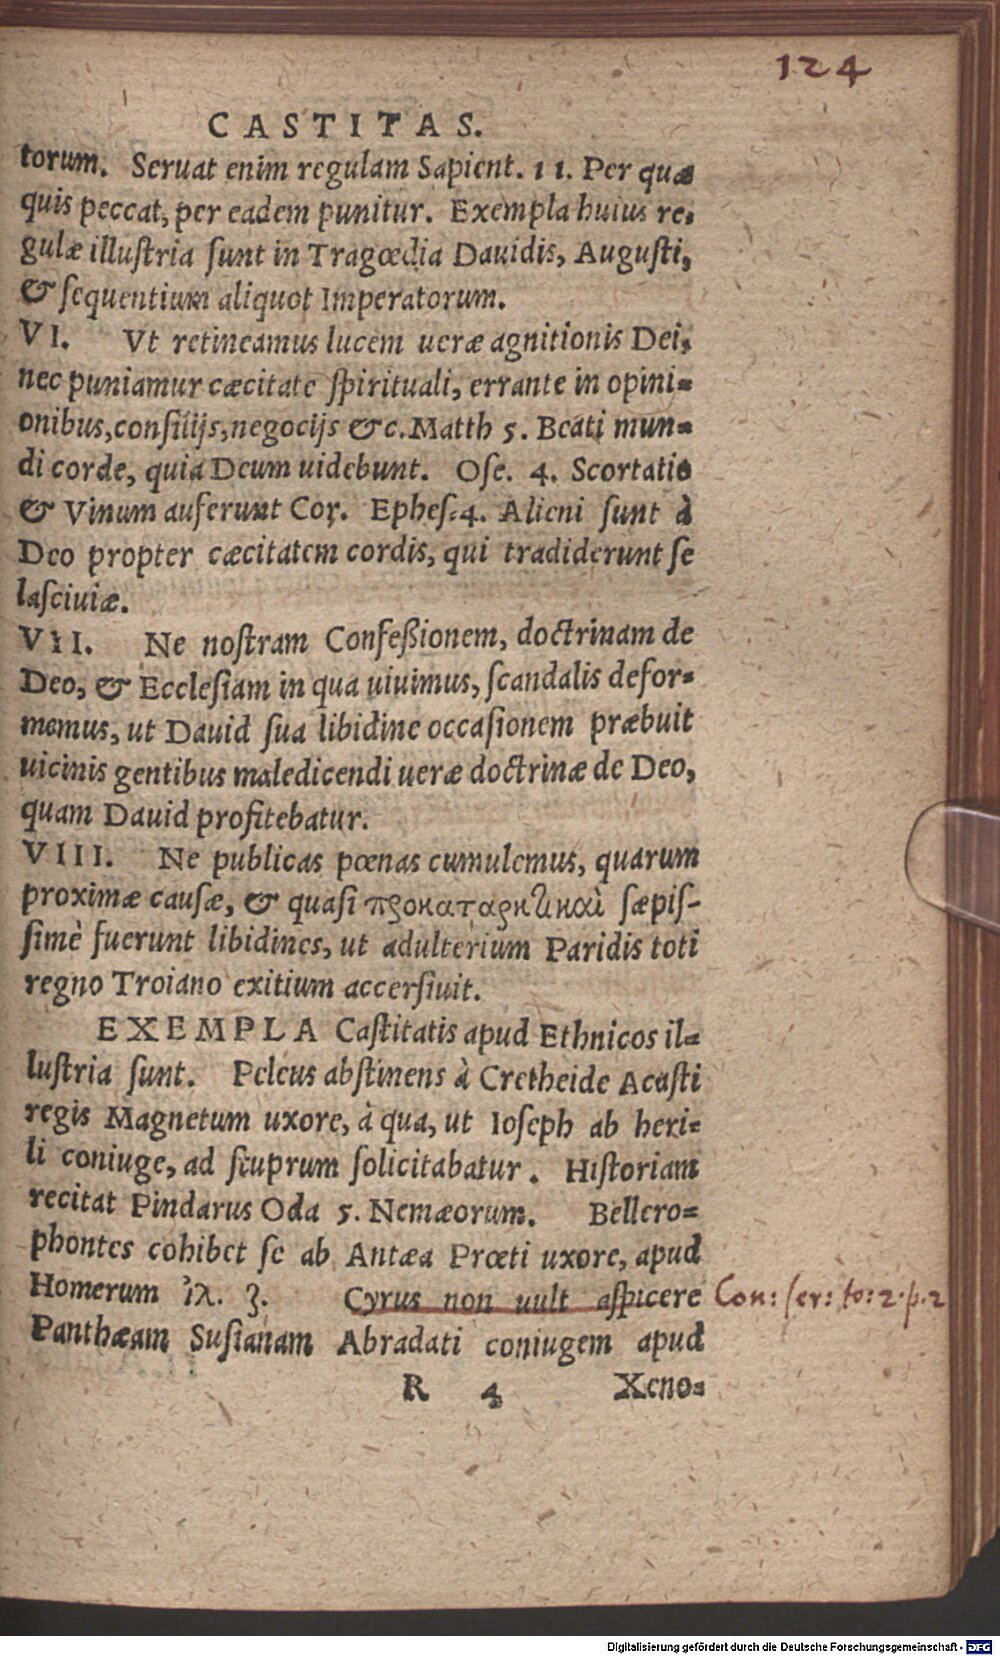 124
CASTITAS.
torum. Seruat enim regulam Sapient. 11. Per quæ
quis peccat, per eadem punitur. Exempla huius re-
gulæ illuſtria ſunt in Tragœdia Dauidis, Auguſti,
& ſequentium aliquot Imperatorum.
VI. Vt retineamus lucem ueræ agnitionis Dei,
nec puniamur cæcitate ſpirituali, errante in opini-
onibus, conſilijs, negocijs &c. Matth 5. Beati mun-
di corde, quia Deum uidebunt. Oſe. 4. Scortatio
& Vinum auferunt Cor. Epheſ: 4. Alieni ſunt à
Deo propter cæcitatem cordis, qui tradiderunt ſe
laſciuiæ.
VII. Ne noſtram Confeßionem, doctrinam de
Deo, & Eccleſiam in qua uiuimus, ſcandalis defor-
memus, ut Dauid ſua libidine occaſionem præbuit
uicinis gentibus maledicendi ueræ doctrinæ de Deo,
quam Dauid profitebatur.
VIII. Ne publicas pœnas cumulemus, quarum
proximæ cauſæ, & quaſi προκαταρκτικαὶ ſæpiſ-
ſimè fuerunt libidines, ut adulterium Paridis toti
regno Troiano exitium accerſiuit.
EXEMPLA Caſtitatis apud Ethnicos il-
luſtria ſunt. Peleus abſtinens à Cretheide Acaſti
regis Magnetum uxore, à qua, ut Ioſeph ab heri-
li coniuge, ad ſtuprum ſolicitabatur. Hiſtoriam
recitat Pindarus Oda 5. Nemæorum. Bellero-
phontes cohibet ſe ab Antæa Prœti uxore, apud
Homerum ἰλ. ζ. Cyrus non uult aſpicere
Con: ſer: to: 2. p. 2
Panthæam Suſianam Abradati coniugem apud
R 4 Xeno-
Digitalisierung gefördert durch die Deutsche Forschungsgemeinschaft - DFG